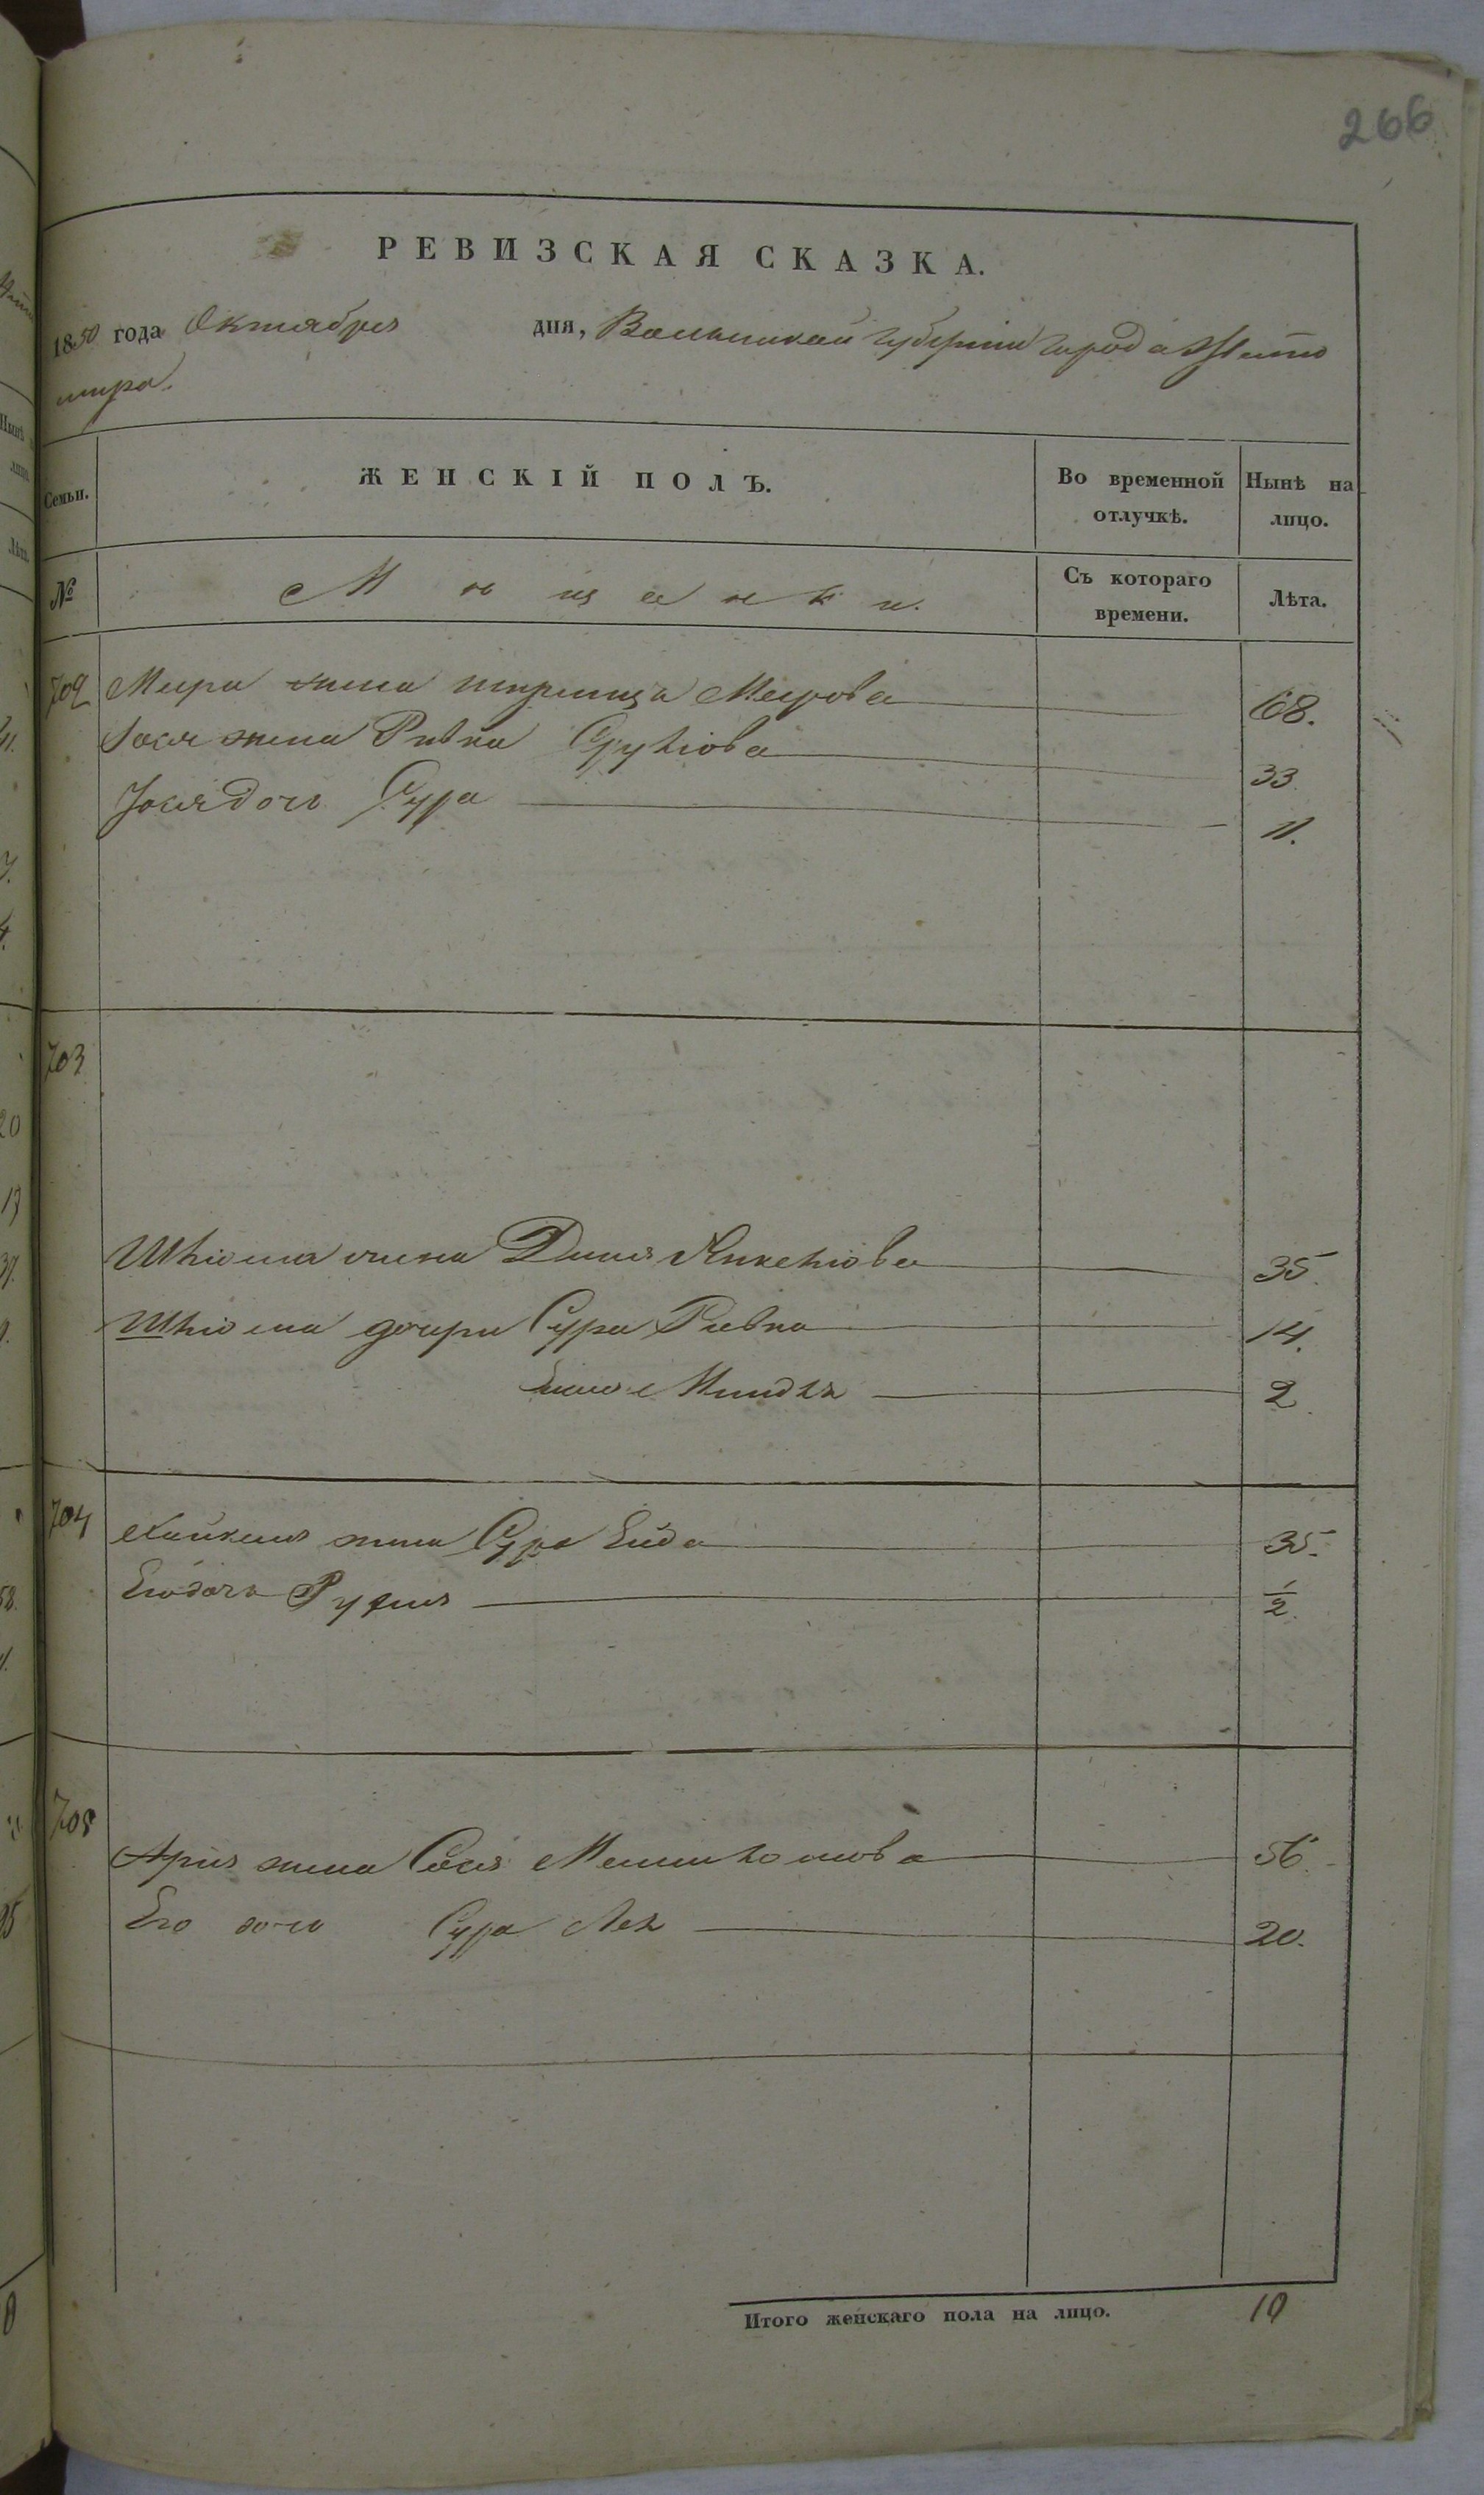 266
РЕВИЗСКАЯ СКАЗКА.
1850 года Октября дня, Волынской губернии города Жито
мира.
Семьи. ЖЕНСКІЙ ПОЛЪ. Во временной отлучкѣ. Нынѣ на лицо.
№ Мѣщанки. Съ котораго времени. Лѣта.
702 Меера жена Мерова 68.
Іося жена Ривка Сруліова 33
Іося дочь Сура 11.
703
Шліома жена Двися Янкеліова 35.
Шліома дочери Сура Ривка 14.
Миндля 2.
704 Хайкеля жена Сура Ейда 35.
Его дочь Рухля 1/2.
705
Арія жена Сося 56.
Его дочь Сура Лея 20.
Итого женскаго пола на лицо. 10